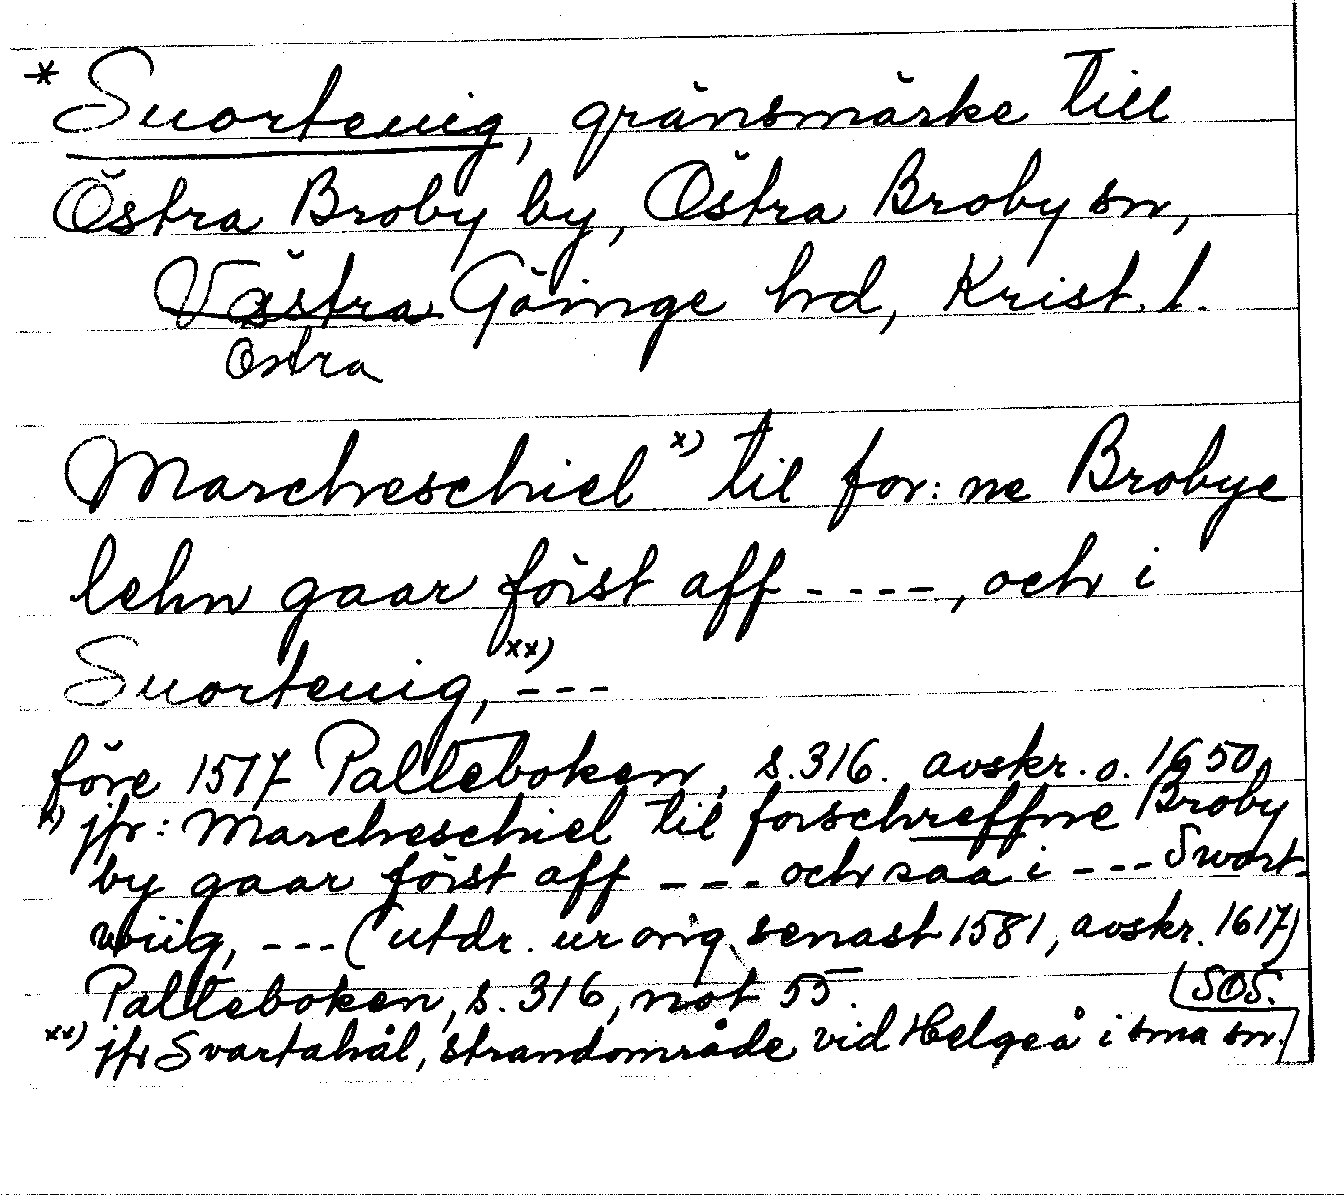 * Suorteuig, gränsmärke till
Östra Broby by, Östra Broby sn,
Västra Göinge hd, Krist. l.
Östra
Marcheschiel x) til for: ne Brobye
lehn gaar först aff ----, och i
Suorteuig, xx) ---
före 1517 Palteboken, s. 316. avskr. o. 1650,
x) jfr: Marcheschiel til forschreffne Broby
by gaar först aff --- och saa i --- Swort-
wiig, --- (utdr. ur orig. senast 1581, avskr. 1617)
Palteboken, s. 316, not 55. SOS.
xx) jfr Svartahål, strandområde vid Helgeå i sma sn.